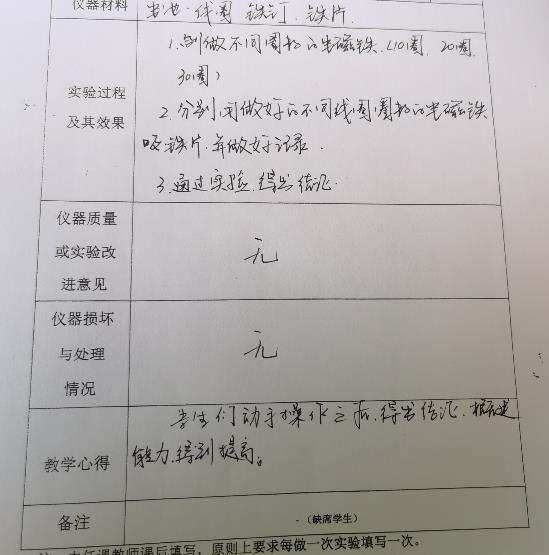 仪器材料 电池、线圈 铁钉、铁片
实验过程
及其效果
1.制做不同圈数的电磁铁.(10圈, 20圈,
30圈)
2.分别用做好的不同线圈圈数的电磁铁
吸铁片.并做好记录.
3.通过实验,得出结论.
仪器质量
或实验改
进意见
无
仪器损坏
与处理
情况
无
教学心得
学生们动手操作之后,得出结论.
能力.得到提高。
备注 (缺席学生)
任课教师课后填写,原则上要求每做一次实验填写一次。